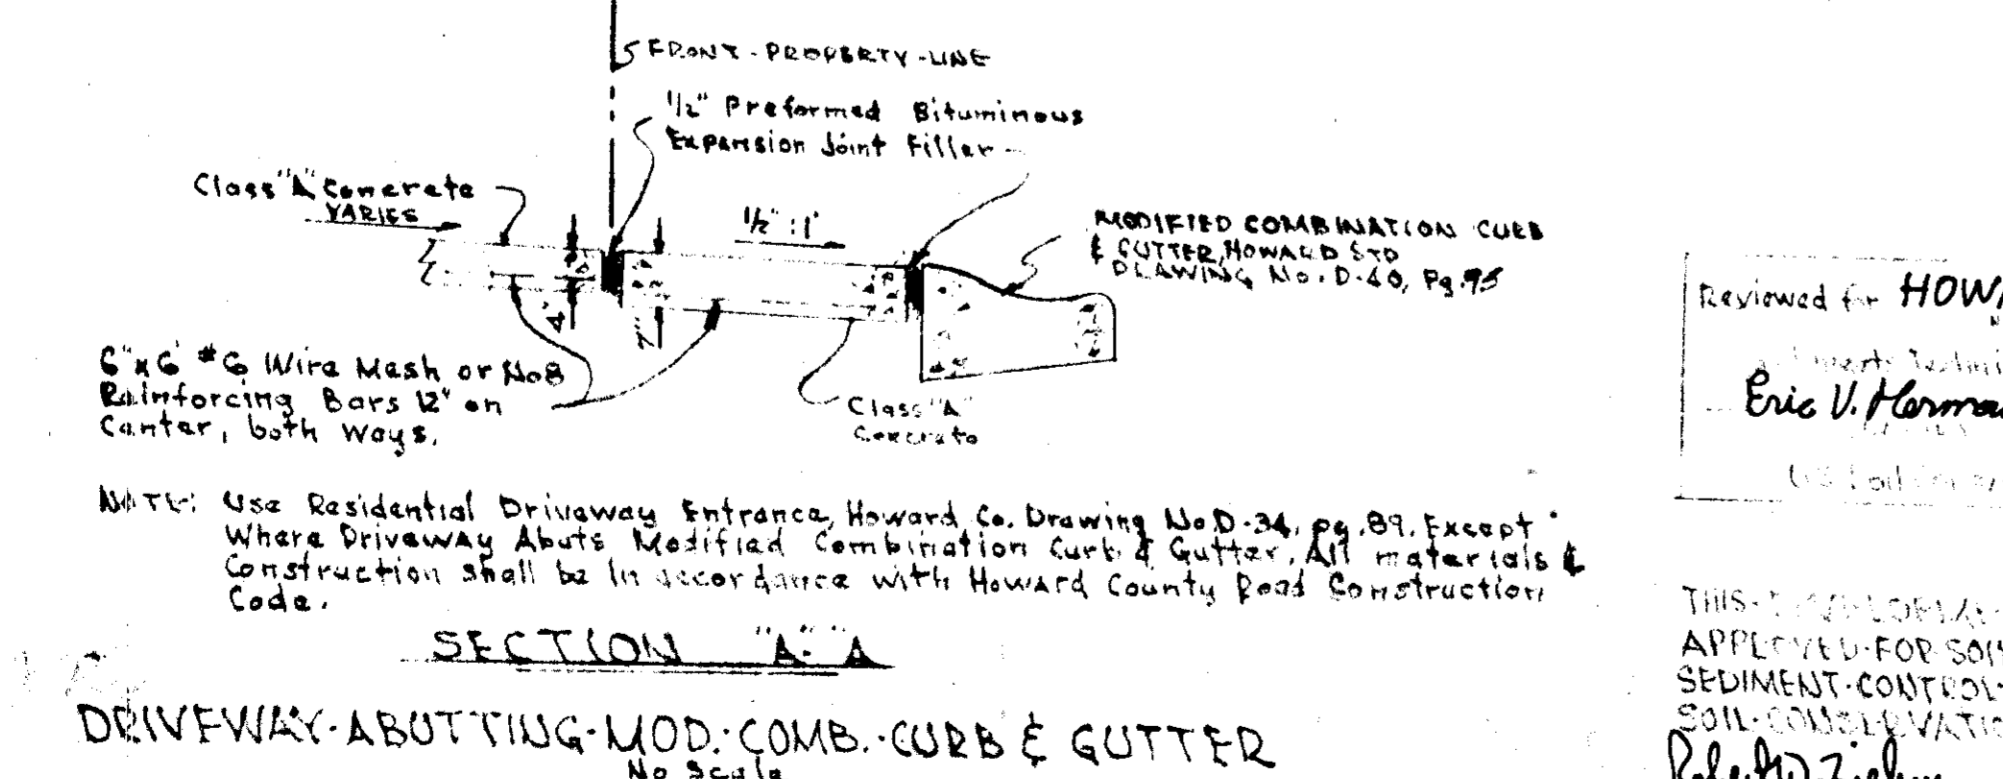 FRONT-PROPERTY-LINE
1/2" Preformed Bituminous
Expansion Joint Filler
Class "A" Concrete
VARIES
1/2" : 1'
MODIFIED COMBINATION CURB
& GUTTER, HOWARD STD
DRAWING No. D-40, Pg. 95
4"
7"
6"x6" #6 Wire Mesh or No8
Reinforcing Bars 12" on
Center, both ways.
Class "A"
Concrete
NOTE: Use Residential Driveway Entrance, Howard Co. Drawing No.D-34, pg.89. Except
Where Driveway Abuts Modified Combination Curb & Gutter. All materials &
Construction shall be in accordance with Howard County Road Construction
Code.
SECTION "A-A"
DRIVEWAY-ABUTTING-MOD.-COMB.-CURB & GUTTER
No Scale
Reviewed for HOW
Eric V.
APPROVED-FOR-SOI
SEDIMENT-CONTROL-
SOIL-CONSERVATIO